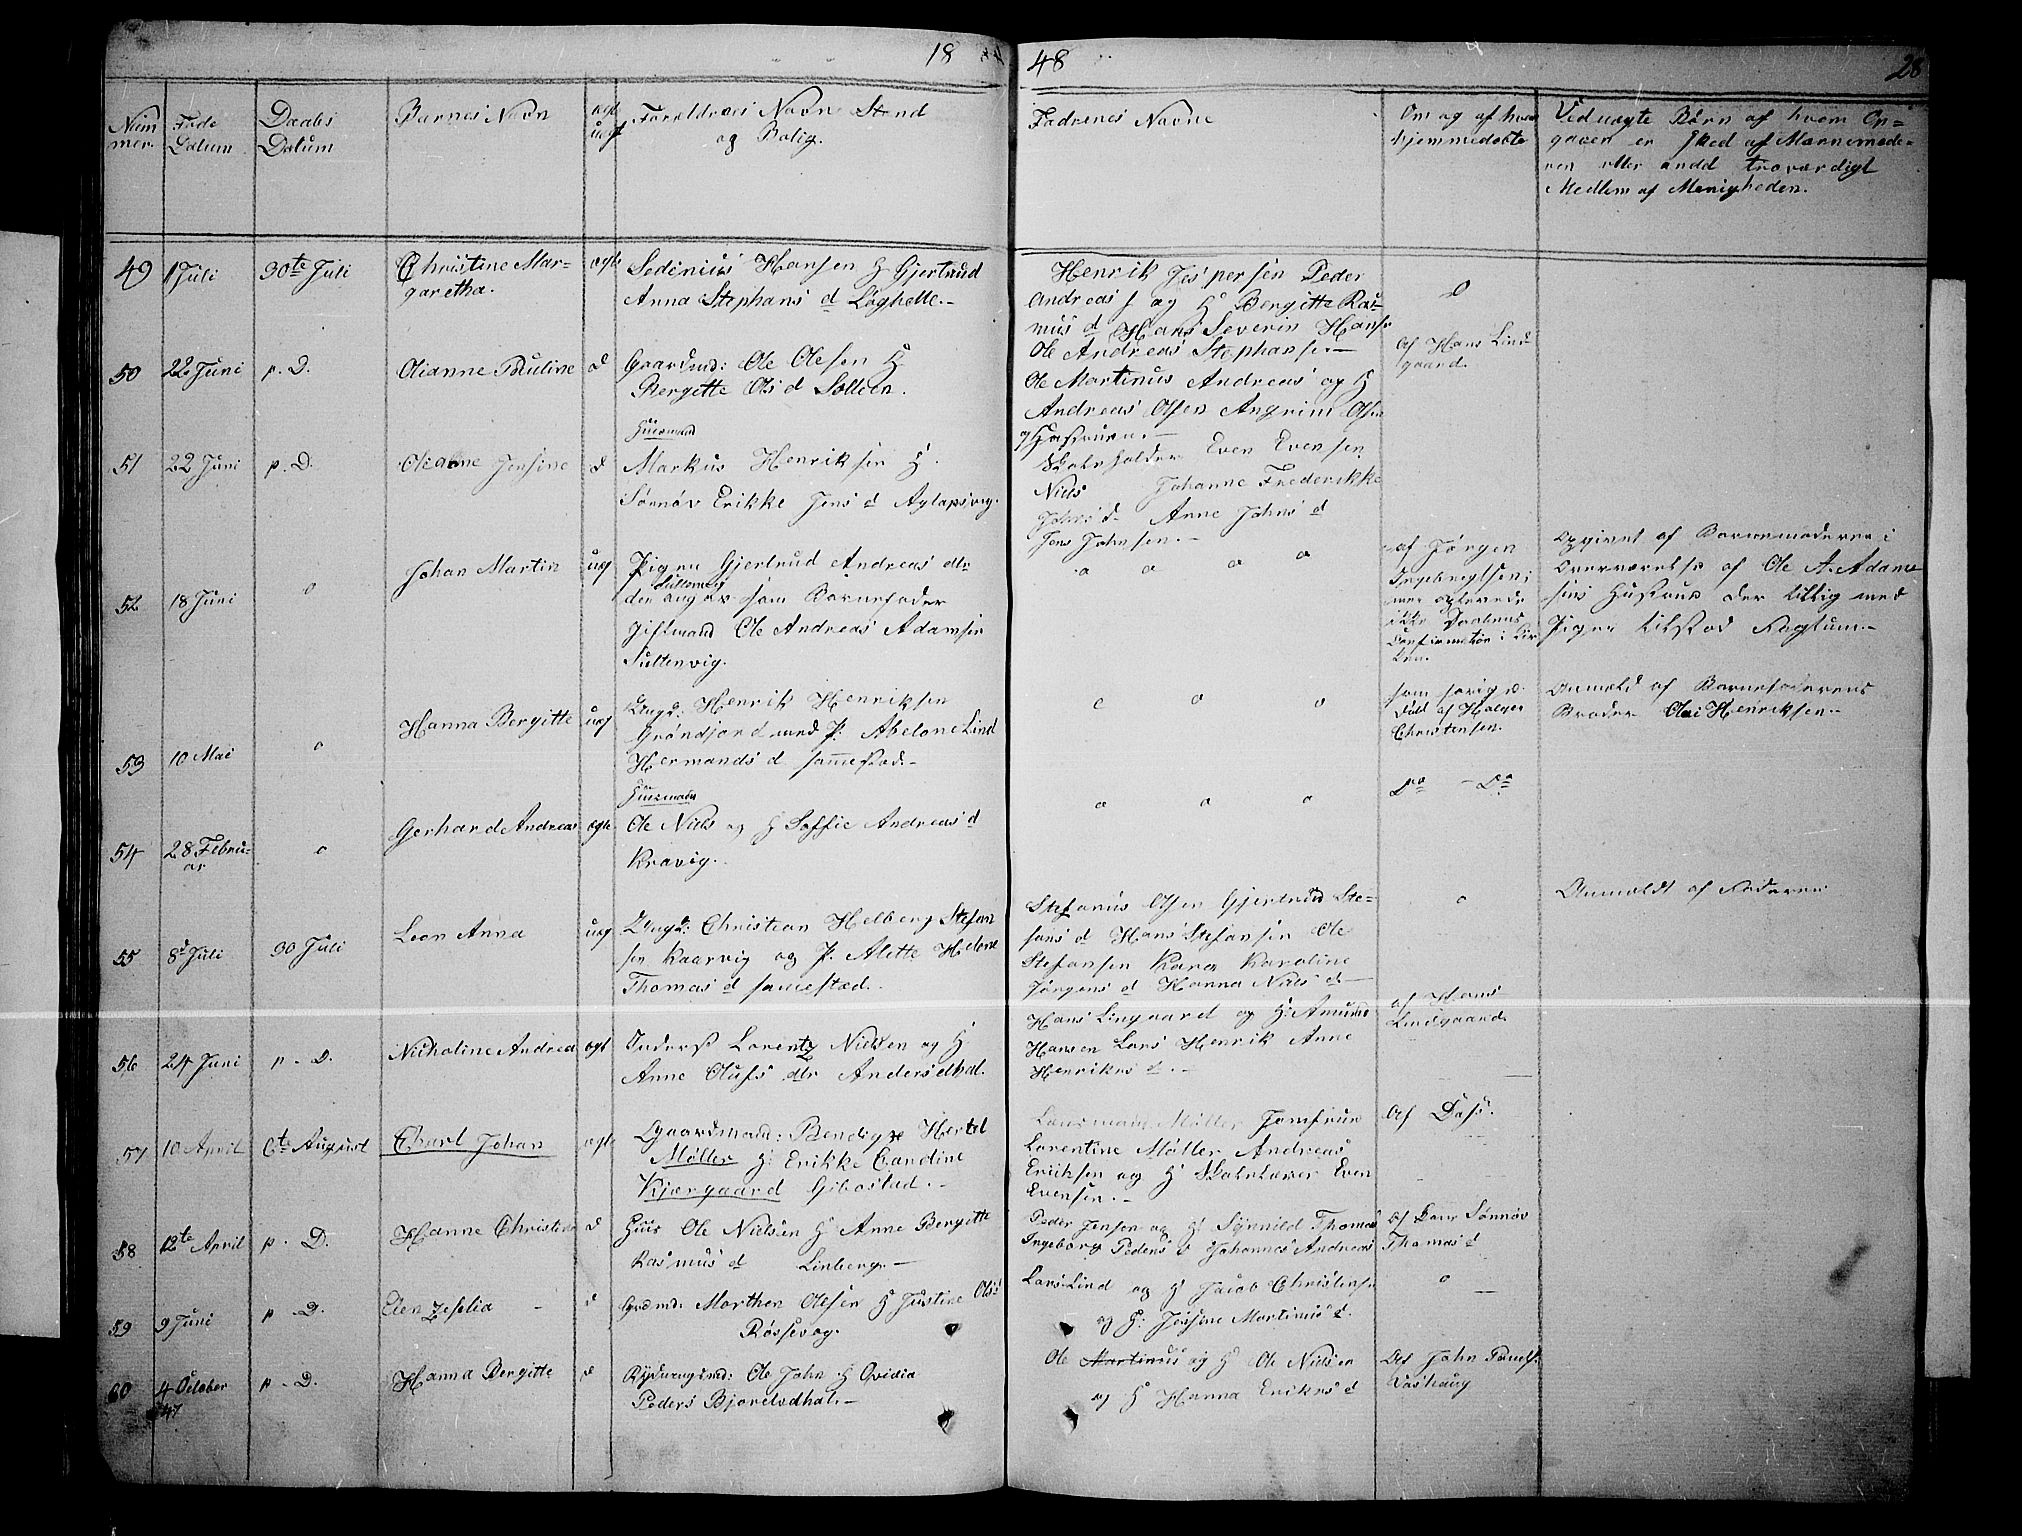 18 48
28
Num
mer.
Føde
Datum
Daabs
Datum
Barnets Navn
ægt
uægt
Foreldrenes Navn Stand
og Bolig.
Fadrenes Navne
Om og af hvem
hjemmedøbte
Ved uægte Børn af hvem Op=
gaven er sked af Mannemode=
ren eller andd troværdigt
Medlem af Menigheden.
49 1 Juli 30te Juli Christine Mar=
garetha.
ægte Sedenius Hansen H Gjertrud
Anna Stephans d Løghelle.-
Henrik Jespersen Peder
Andreas s og H Bergitte Ras=
mus d Hans Severin Hans
Ole Andreas Stephansen.-
o
50 22 Juni p. D. Olianne Pauline d Gaardmd: Ole Olesen H
Bergitte Ols d Solleen.
Ole Martinus Andreas og H
Andreas Olsen Angrim Olsen
og Hustruen.-
Af Hans Lind
gaard.
51 22 Juni p. D. Oleanne Jensine d
Huusmand
Markus Henriksen H.
Sønnøv Erikke Jens d Aglapsvig.
Skoleholder Even Evensen
Niels Johanne Frederikke
Johns d. Anne Johns d
Jens Johnsen.-
52 18 Juni o Johan Martin uæg Pigen Gjertrud Andreas dtr
Sultenvig
den angav som Barnefader
Giftmand Ole Andreas Adamsen
Sultenvig.
o o o o
af Jørgen
Ingebregtsen;
men oplevede
ikke Daabens
Confirmation i Kir
ken.
Opgivet af Barnemoderen i
Overværelse af Ole A. Adam
sens Hustrue der tillig med
Pigen tilstod Factum.-
53 10 Mai o Hanna Bergitte uæg Ungk: Henrik Henriksen
Grøndjord med P: Abelone Lind
Hermands d sammestad.-
o o o
som forig d.
Død af Holger
Christensen.
Anmeld af Barnefaderens
Broder Olai Henriksen.-
54 28 Febru=
ar
o Gerhard Andreas ægte
Huusmand
Ole Niels og H Soffie Andreas d
Kravig.
o o o
Do - Do
55 8d Juli 30 Juli Leon Anna uæg Ungk: Christian Helberg Stefan
sen Kaarvig og P. Alette Helene
Thomas d samestæd.
Stefanus Olsen Gjertrud Ste=
fans d Hans Stefansen Ole
Stefansen Karen Karoline
Jørgens d Hanna Niels d -
o
Anmeldt af Faderen
56 24 Juni p. D. Nicholine Andrea ægt Anders Lorentz Nielsen og H
Anne Olufs dtr Andersdhal.
Hans Lingaard og H: Amund
Hansen Lars Henrik Anne
Henriks d.-
af Hans
Lindgaard.
57 10 April 6te August Charl Johan ægte Gaardmand: Bendigge Hertel
Møller H: Erikke Cardine
Kjærgaard Gibostad.-
Lensmand Møller Jomfrue
Lorentine Møller Andreas
Eriksen og H Skolelærer Even
Evensen.-
Af Dass.
58 12te April p. D. Hanne Christine d Huus Ole Nielsen H Anne Bergitte
Rasmus d Linberg.-
Peder Jensen og H Synnild Thomas
Ingeborg Peders d Johannes Andreas
Af Lars Sønnøv
Thomas d
59 9 Juni p. D. Elen Zefelia d Grdmd: Morthen Olesen H Justine Ols
Røssevog.
Lars Lind og H Jacob Christense
og H: Jessine Martinus d.
o
60 4 October
47
p. D. Hanna Bergitte d Rydningsmd: Ole John H Ovidia
Peders Bjorelvdhal.-
Ole Martinus og H Ole Nielsen
og H Hanna Eriks d
Af John Pouels
Vashaug